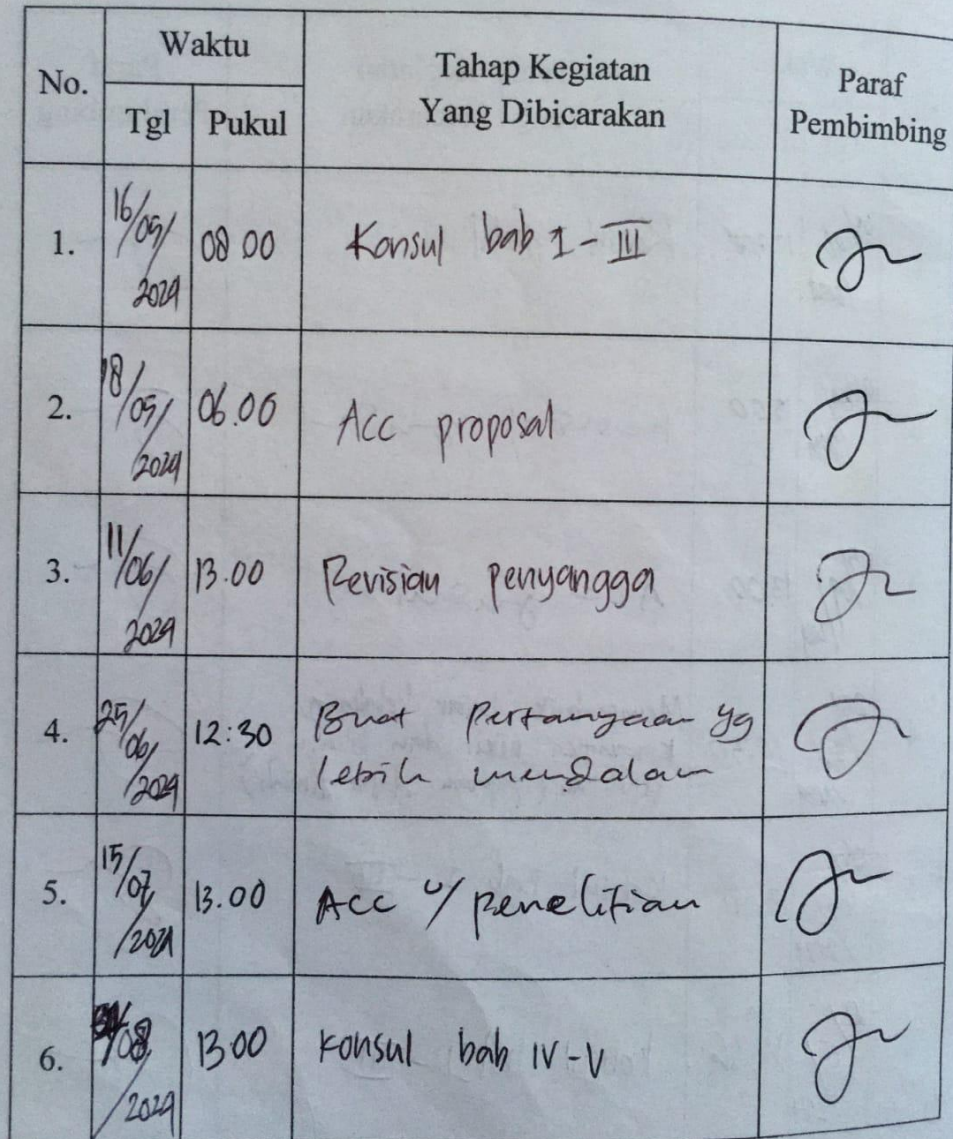 No.
Waktu
Tahap Kegiatan
Yang Dibicarakan
Paraf
Pembimbing
Tgl
Pukul
1.
16/05/
2024
08 00
Konsul bab I-III
2.
18/05/
2024
06.00
Acc proposal
3.
11/06/
2024
13.00
Revisian penyangga
4.
25/06/
2024
12:30
Buat Pertanyaan yg
lebih mendalam
5.
15/07/
2024
13.00
Acc u/ penelitian
6.
/08
/2024
13.00
Konsul bab IV-V